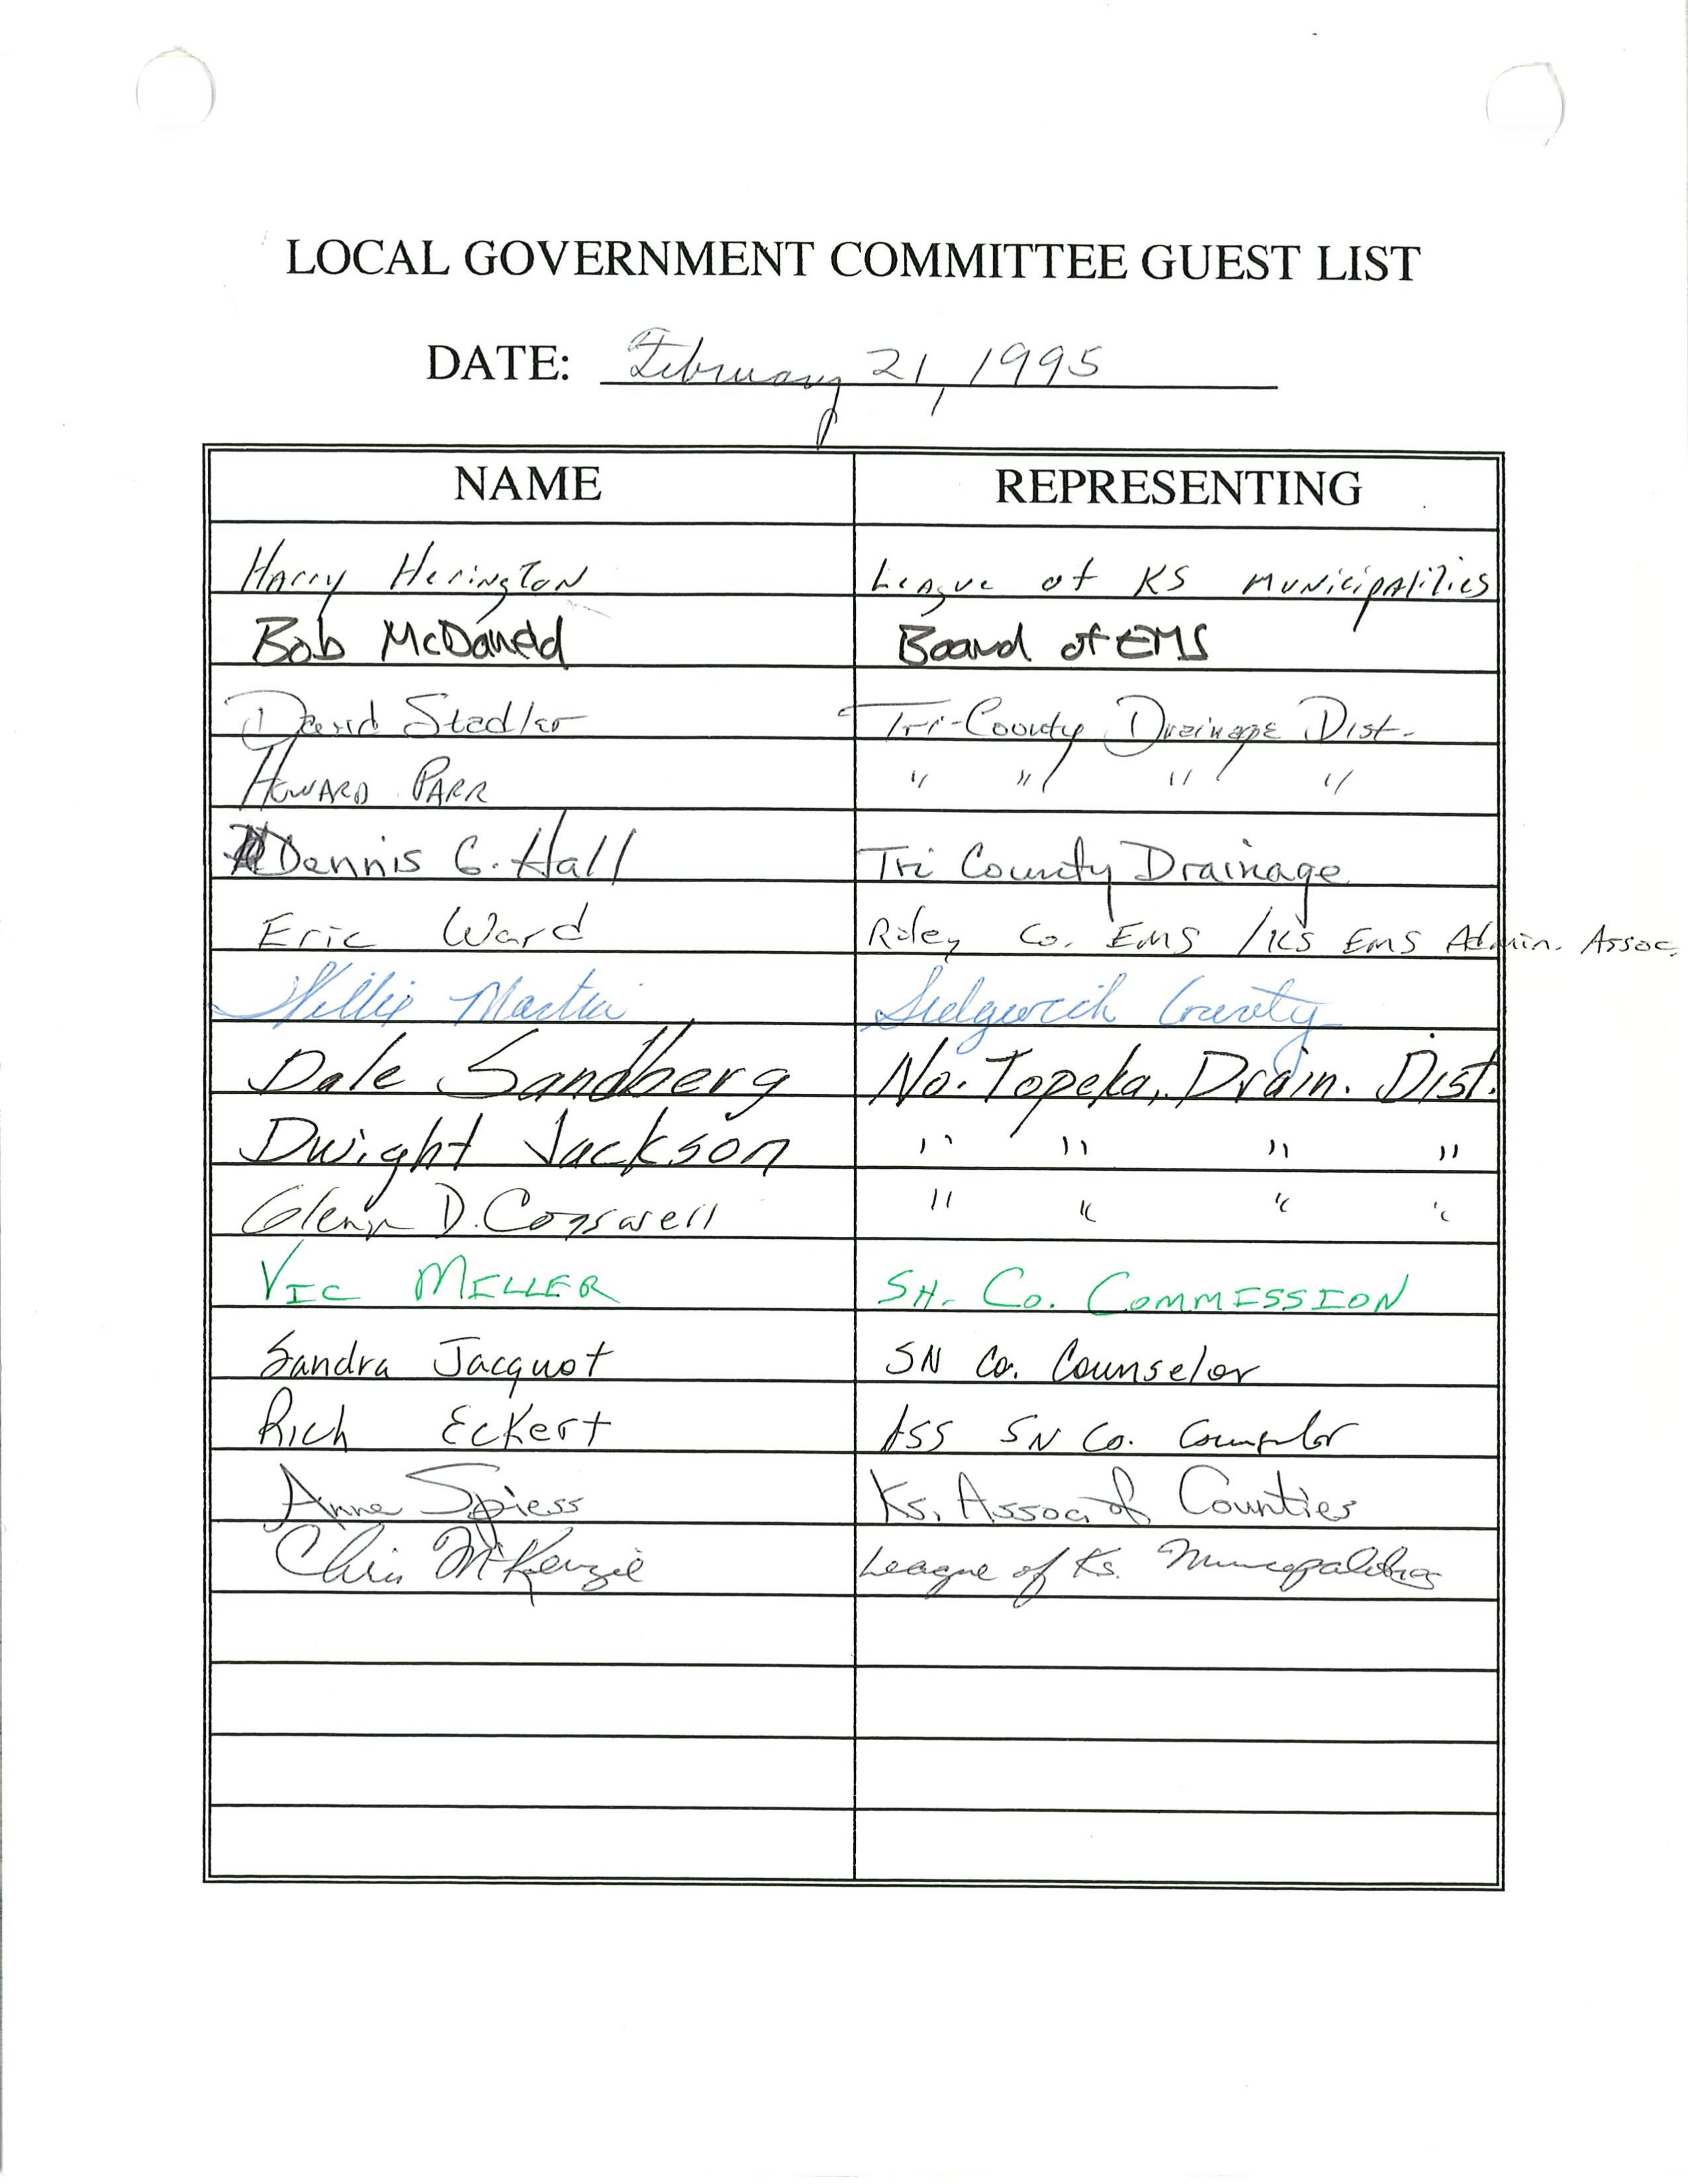 LOCAL GOVERNMENT COMMITTEE GUEST LIST
DATE: February 21, 1995
NAME REPRESENTING
Harry Herington League of KS Municipalities
Bob McDaneld Board of EMS
David Stadler Tri-County Drainage Dist.
Howard Parr " " " "
Dennis G. Hall Tri County Drainage
Eric Ward Riley Co. EMS / KS EMS Admin. Assoc.
Willie Martin Sedgwick County
Dale Sandberg No. Topeka, Drain. Dist.
Dwight Jackson " " " "
Glenn D. Cogswell " " " "
VIC MILLER SH. CO. COMMISSION
Sandra Jacquot SN Co. Counselor
Rich Eckert Ass SN Co. Counselor
Anne Spiess Ks. Assoc of Counties
Chris McKenzie League of Ks. Municipalities